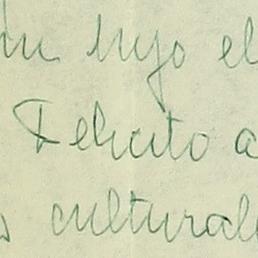 hijo el
Felicito a
culturale